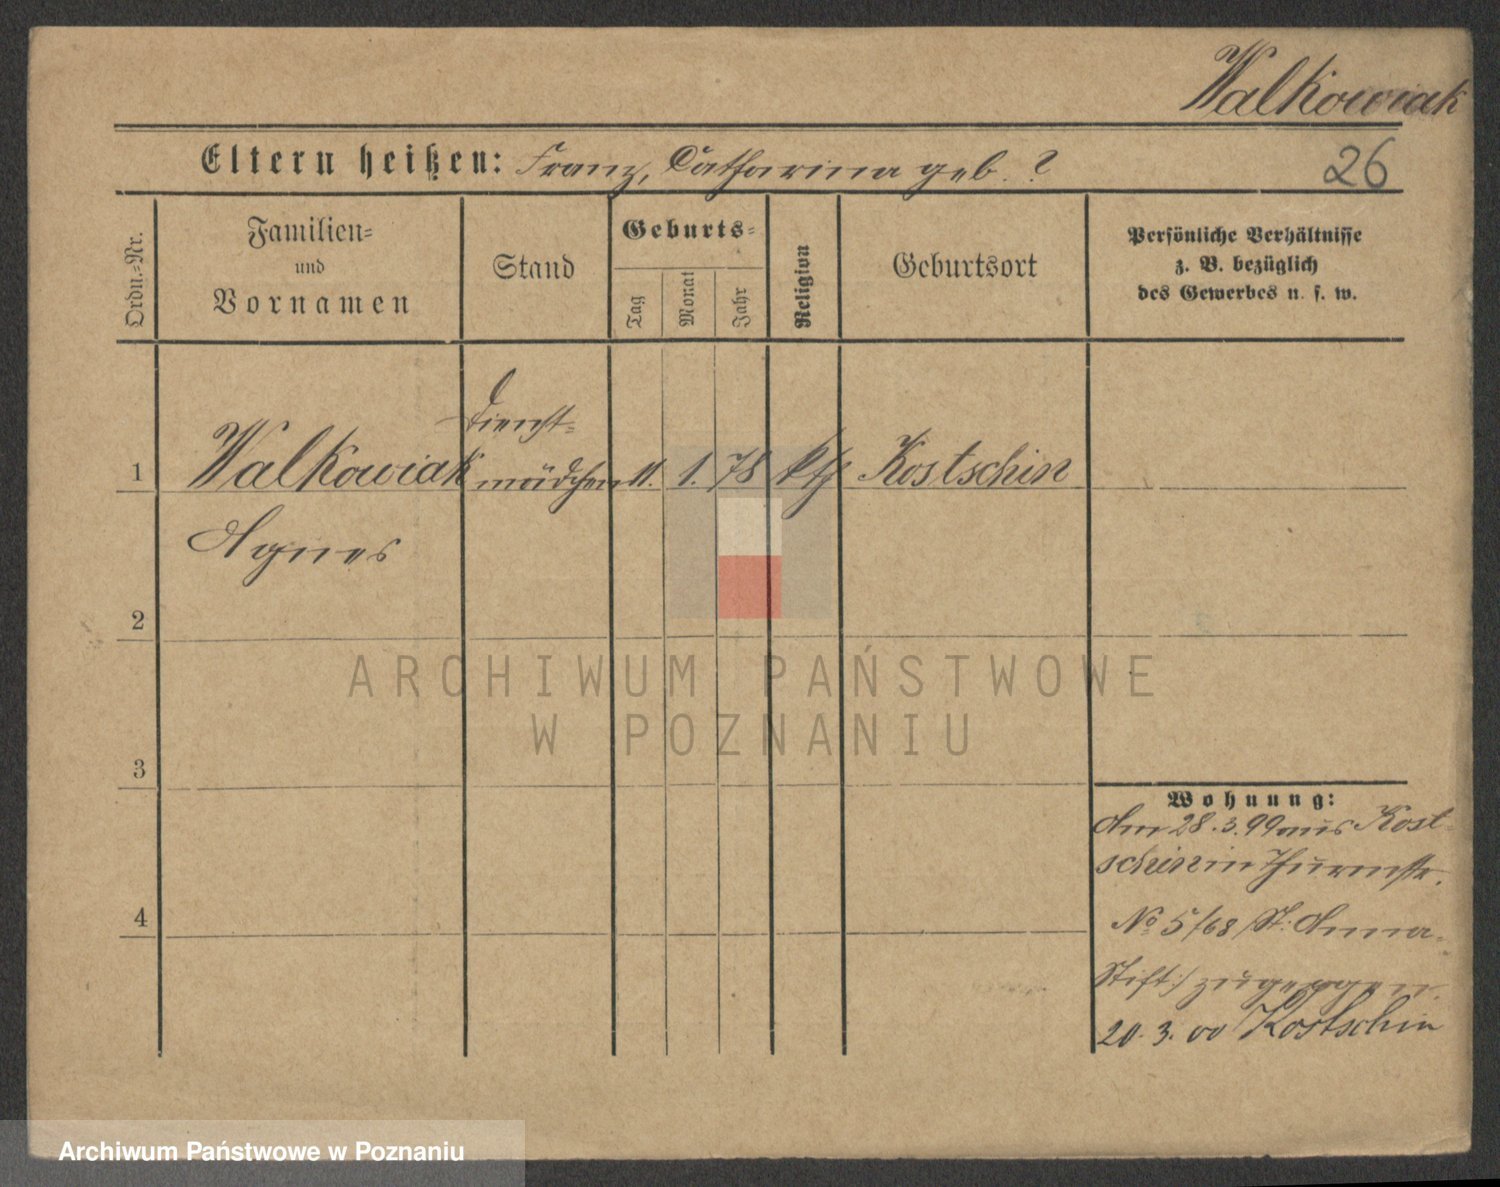 Walkowiak
Eltern heißen: Franz, Catharina geb. ?
26
Ordn.-Nr.
Familien-
und
Vornamen
Stand
Geburts-
Tag
Monat
Jahr
Religion
Geburtsort
Persönliche Verhältnisse
z. B. bezüglich
des Gewerbes u. s. w.
Dienst-
1 Walkowiak mädchen 11. 1. 78 kth Kostschin
Agnes
2
ARCHIWUM PAŃSTWOWE
W POZNANIU
3
Wohnung:
Am 28.3.99 aus Kost-
schin in Thurmstr.
No 5/68 St: Anna-
Stift:/ zugezogen.
20. 3. 00 Kostschin
4
Archiwum Państwowe w Poznaniu